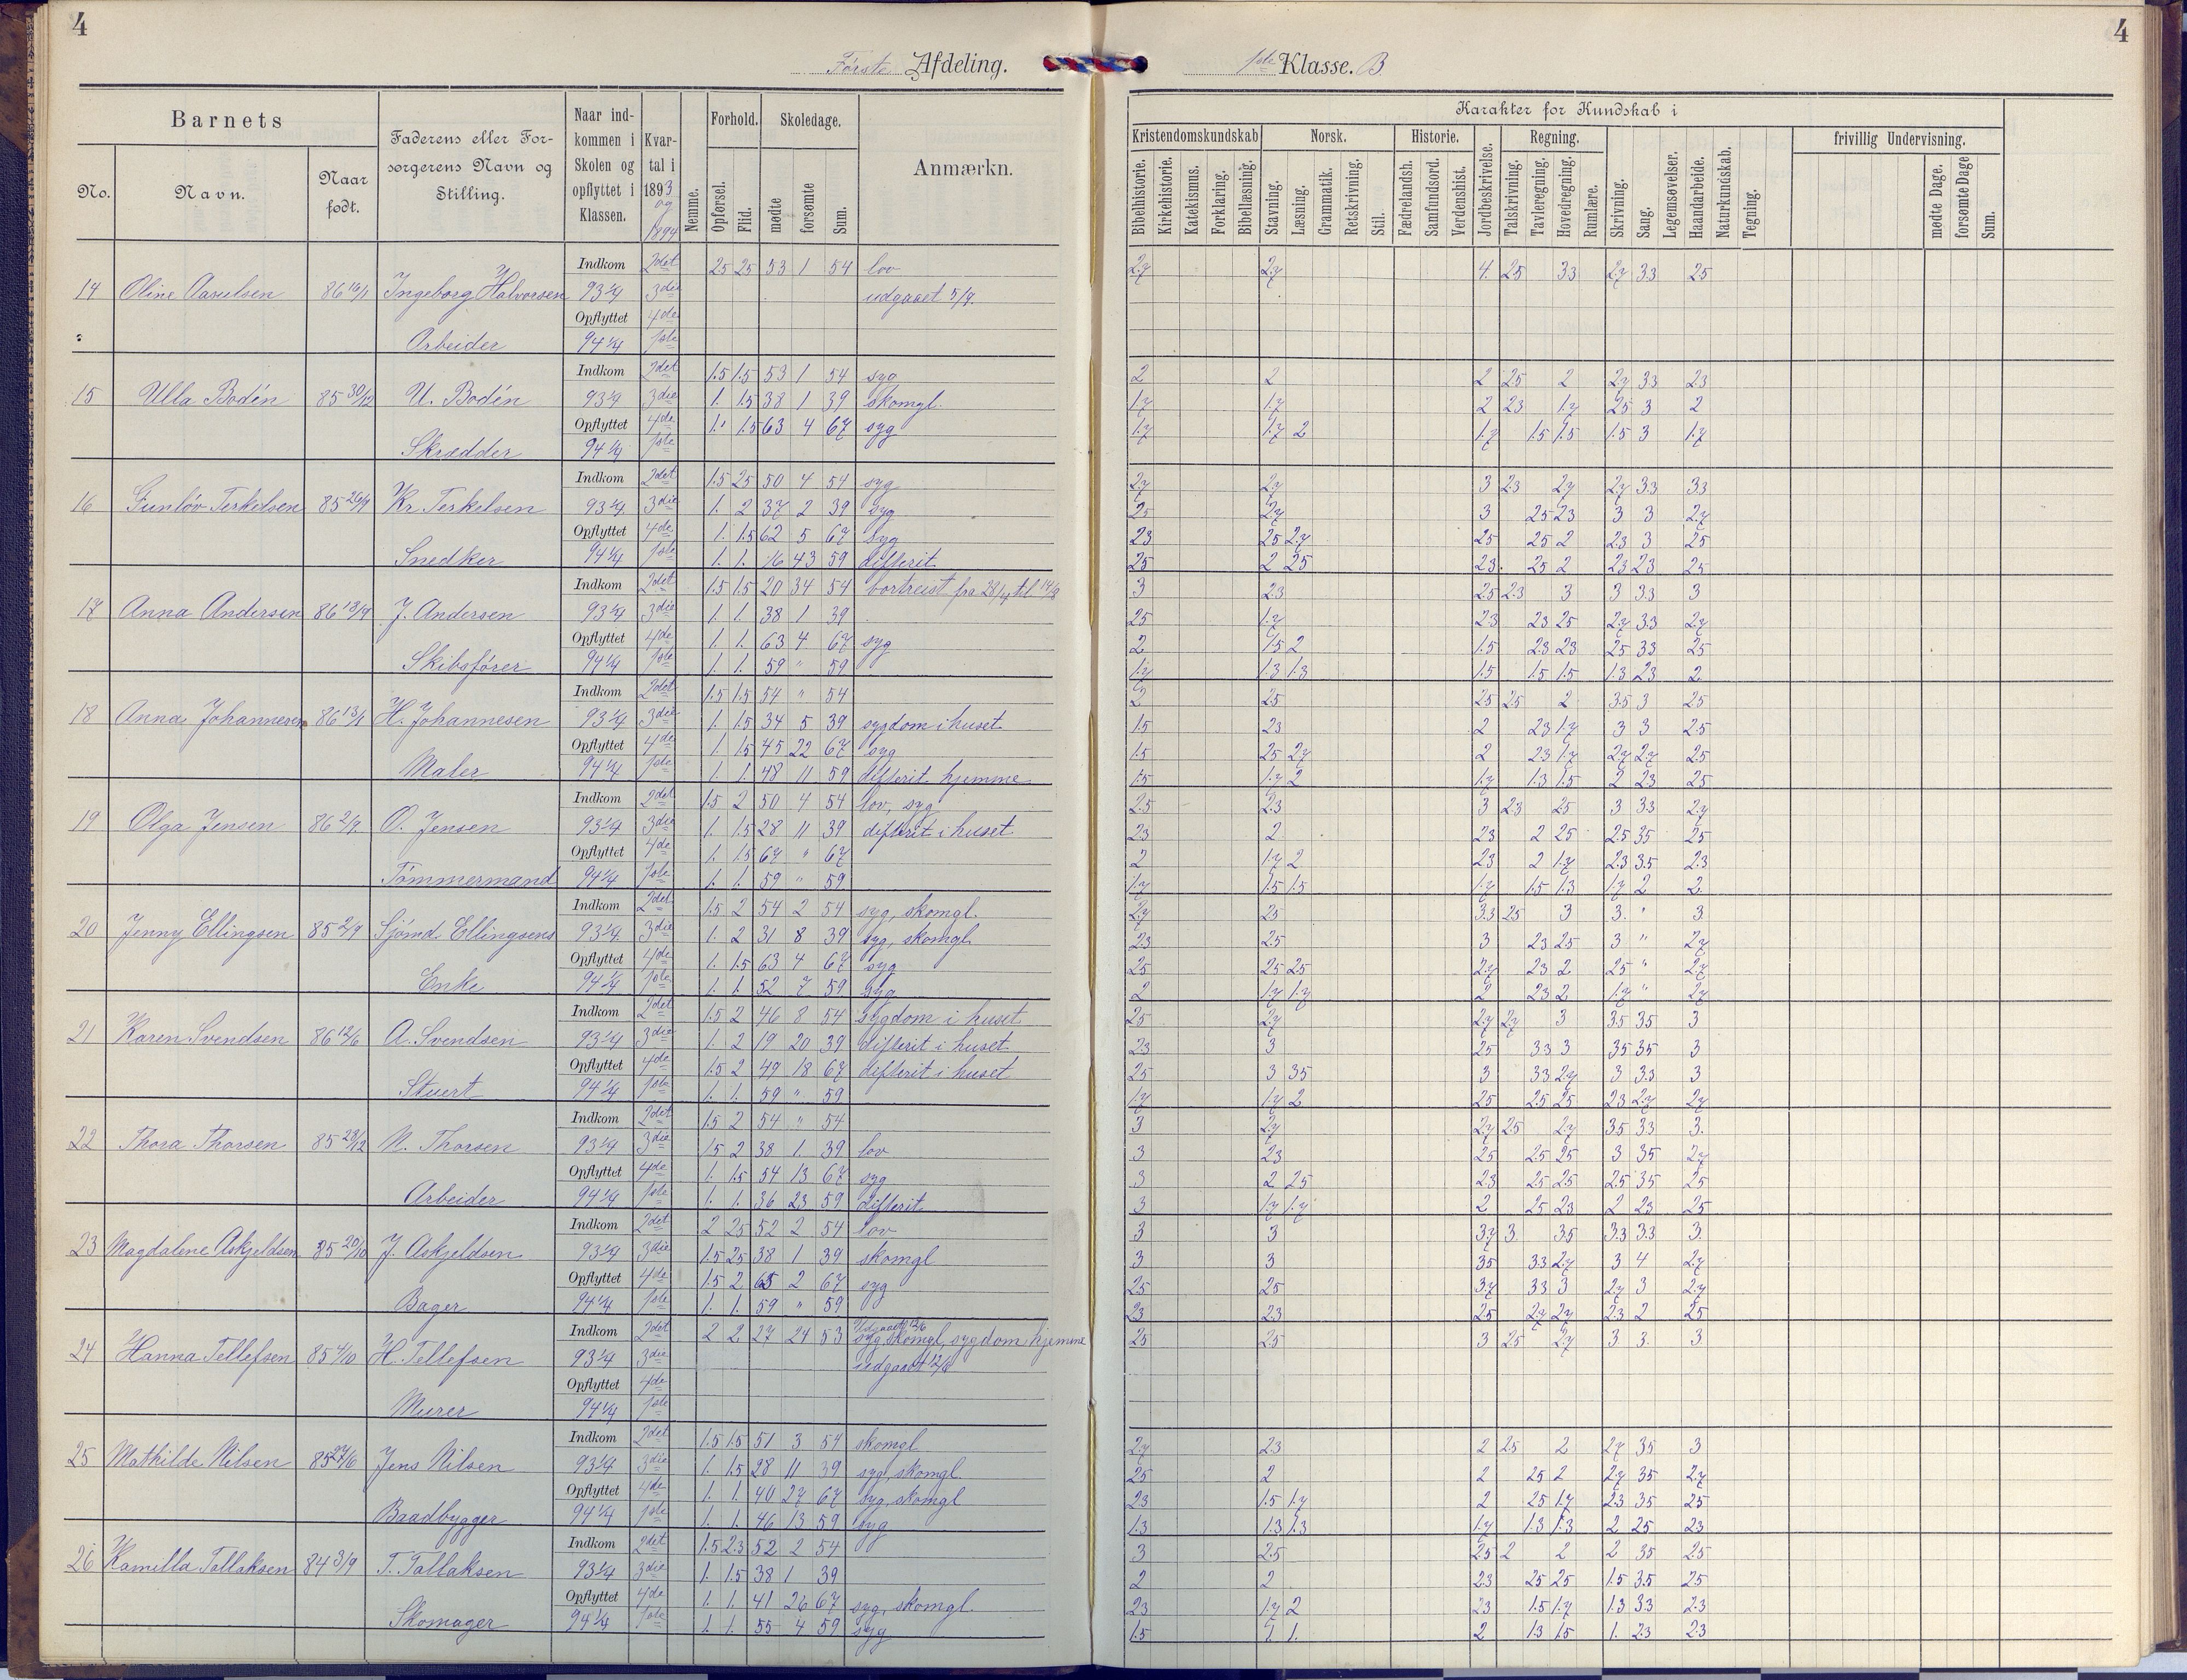 4
4
Første Afdeling.
1ste Klasse. B
Barnets
No.
Navn.
Naar født.
Faderens eller Forsørgerens Navn og Stilling.
Naar indkommen i Skolen og opflyttet i Klassen.
Kvartal i 1893 og 1894
Nemme.
Forhold.
Opførsel.
Flid.
Skoledage.
mødte
forsømte
Sum.
Anmærkn.
Karakter for Kundskab i
Kristendomskundskab
Norsk.
Historie.
Regning.
frivillig Undervisning.
Bibelhistorie.
Kirkehistorie.
Katekismus.
Forklaring.
Bibellæsning.
Stavning.
Læsning.
Grammatik.
Retskrivning.
Stil.
Fædrelandsh.
Samfundsord.
Verdenshist.
Jordbeskrivelse.
Talskrivning.
Tavleregning.
Hovedregning.
Rumlære.
Skrivning.
Sang.
Legemsøvelser.
Haandarbeide.
Naturkundskab.
Tegning.
mødte Dage.
forsømte Dage
Sum.
Indkom 2det 25 25 53 1 54 lov 2.7 2.7 4. 25 33 2.7 33 25
14 Oline Aasulsen 86 16/1 Ingeborg Halvorsen 93 1/4 3die udgaaet 5/9.
Opflyttet 4de
Arbeider 94 1/4 1ste
Indkom 2det 1.5 1.5 53 1 54 syg 2 2 2 25 2 2.7 33 23
15 Ulla Bodén 85 30/12 U. Bodén 93 1/4 3die 1. 1.5 38 1 39 skomgl. 1.7 1.7 2 23 1.7 25 3 2
Opflyttet 4de 1. 1.5 63 4 67 syg 1.7 1.7 2 1.7 1.5 1.5 1.5 3 1.7
Skrædder 94 1/4 1ste
Indkom 2det 1.5 25 50 4 54 syg 2.7 2.7 3 2.3 2.7 2.7 33 33
16 Terkelsen 85 26/9 Kr. Terkelsen 93 1/4 3die 1. 2 37 2 39 syg 25 2.7 3 25 23 3 3 2.7
Opflyttet 4de 1. 1.5 62 5 67 syg 23 25 2.7 25 25 2 2.3 3 25
Snedker 94 1/4 1ste 1. 1. 16 43 59 difterit 25 2 25 23. 25 2 23 23 25
Indkom 2det 1.5 1.5 20 34 54 bortreist fra 28/4 til 14/8 3 23 25 2.3 3 3 33 3
17 Anna Andersen 86 18/9 J. Andersen 93 1/4 3die 1. 1. 38 1 39 25 1.7 2.3 23 25 2.7 33 2.7
Opflyttet 4de 1. 1. 63 4 67 syg 2 1.5 2 1.5 2.3 23 25 33 25
Skibsfører 94 1/4 1ste 1. 1. 59 " 59 1.7 1.3 1.3 1.5 1.5 1.5 1.3 23 2
Indkom 2det 1.5 1.5 54 " 54 2 25 25 25 2 3.5 3 25
18 Anna Johannesen 86 13/1 H. Johannesen 93 1/4 3die 1. 1.5 34 5 39 sygdom i huset 1.5 23 2 23 1.7 3 3 2.5
Opflyttet 4de 1. 1.5 45 22 67 syg 1.5 25 2.7 2 2.3 1.7 2.7 2.7 2.5
Maler 94 1/4 1ste 1. 1. 48 11 59 difterit hjemme 1.5 1.7 2 1.7 1.3 1.5 2 23 25
Indkom 2det 1.5 2 50 4 54 lov, syg 2.5 2.3 3 2.3 25 3 33 2.7
19 Olga Jensen 86 2/7 O. Jensen 93 1/4 3die 1. 1.5 28 11 39 difterit i huset 23 2 23 2 25 2.5 35 25
Opflyttet 4de 1. 1.5 67 " 67 2 1.7 2 23 2 1.7 23 3.5 2.3
Tømmermand 94 1/4 1ste 1. 1. 59 " 59 1.7 1.5 1.5 1.7 1.5 1.3 1.7 2 2
Indkom 2det 1.5 2 54 2 54 syg, skomgl. 2.7 25 3.3 25 3 3. " 3
20 Jenny Ellingsen 85 2/9 Sjømd. Ellingsens 93 1/4 3die 1. 2 31 8 39 syg, skomgl. 23 2.5 3 23 2.5 3 " 2.7
Opflyttet 4de 1. 1.5 63 4 67 syg 25 25 25 2.7 23 2 25 " 2.7
Enke 94 1/4 1ste 1. 1. 52 7 59 syg 2 1.7 1.7 2 23 2 1.7 " 2.7
Indkom 2det 1.5 2 46 8 54 sygdom i huset 25 2.7 2.7 2.7 3 3.5 35 3
21 Karen Svendsen 86 12/6 A. Svendsen 93 1/4 3die 1. 2 19 20 39 difterit i huset 23 3 25 33 3 35 35 3
Opflyttet 4de 1.5 2 49 18 67 difterit i huset 25 3 35 3 33 2.7 3 3.3 3
Stuert 94 1/4 1ste 1. 1. 59 " 59 1.7 1.7 2 25 2.5 25 23 2.7 2.7
Indkom 2det 1.5 2 54 " 54 3 2.7 2.7 25 2.7 35 33 3.
22 Thora Thorsen 85 28/12 N. Thorsen 93 1/4 3die 1.5 2 38 1. 39 lov 3 23 25 25 25 3 35 2.7
Opflyttet 4de 1. 1.5 54 13 67 syg 3 2 25 23 25 25 2.5 35 25
Arbeider 94 1/4 1ste 1. 1. 36 23 59 difterit 3 1.7 1.7 2 25 23 2 23 25
Indkom 2det 2 25 52 2 54 lov 3 3 3.7 3. 3.5 3.3 3.3 3.
23 Magdalene Askjeldsen 85 20/10 J. Askjeldsen 93 1/4 3die 1.5 25 38 1 39 skomgl 3 3 35 33 2.7 3 4 2.7
Opflyttet 4de 1.5 2 65 2 67 syg 25 25 3.7 33 3 2.7 3 2.7
Bager 94 1/4 1ste 1. 1. 59 " 59 23 23 25 2.7 2.7 2.3 2 25
Indkom 2det 2 2 27 24 53 syg, skomgl, sygdom hjemme 25 25 3 25 2.7 3 3. 3
24 Hanna Tellefsen 85 4/10 H. Tellefsen 93 1/4 3die udgaaet 12/6
Opflyttet 4de
Murer 94 1/4 1ste
Indkom 2det 1.5 1.5 51 3 54 skomgl 2.7 23 2 25 2 2.7 35 3
25 Mathilde Nilsen 85 27/6 Jens Nilsen 93 1/4 3die 1. 1.5 28 11 39 syg, skomgl. 25 2 2 25 2 2.7 35 2.7
Opflyttet 4de 1. 1. 40 27 67 syg, skomgl 23 1.5 1.7 2 25 1.7 23 35 25
Baadbygger 94 1/4 1ste 1. 1. 46 13 59 syg 1.3 1.3 1.3 1.7 1.3 1.3 2 25 23
Indkom 2det 1.5 2.3 52 2 54 3 2.5 2.5 2 2 2 35 25
26 Kamilla Tallaksen 84 3/9 T. Tallaksen 93 1/4 3die 1. 1.5 38 1 39 2 2 23 25 25 1.5 3.5 25
Opflyttet 4de 1. 1. 41 26 67 syg, skomgl. 23 1.7 2 23 1.5 1.7 1.3 33 2.3
Skomager 94 1/4 1ste 1. 1. 55 4 59 syg 1.5 1. 1. 2 1.3 1.5 1. 2.3 23